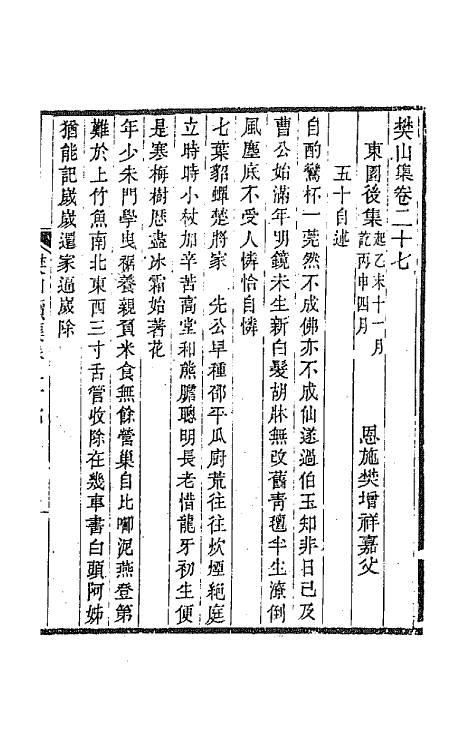 樊山集卷二十七
東園後集起乙未十一月訖丙申四月
恩施樊增祥嘉父
五十自述
自酌鸞杯一莞然不成佛亦不成仙遂過伯玉知非日已及
曹公始滿年明鏡未生新白髮胡牀無改舊青氊半生潦倒
風塵底不受人憐恰自憐
七葉貂蟬楚將家 先公早種邵平瓜廚荒往往炊煙絕庭
立時時小杖加辛苦高堂和熊膽聰明長老惜龍牙初生便
是寒梅樹歷盡冰霜始著花
年少朱門學曳裾養親負米食無餘營巢自比啣泥燕登第
難於上竹魚南北東西三寸舌管收除在幾車書白頭阿姊
猶能記歲歲還家逼歲除